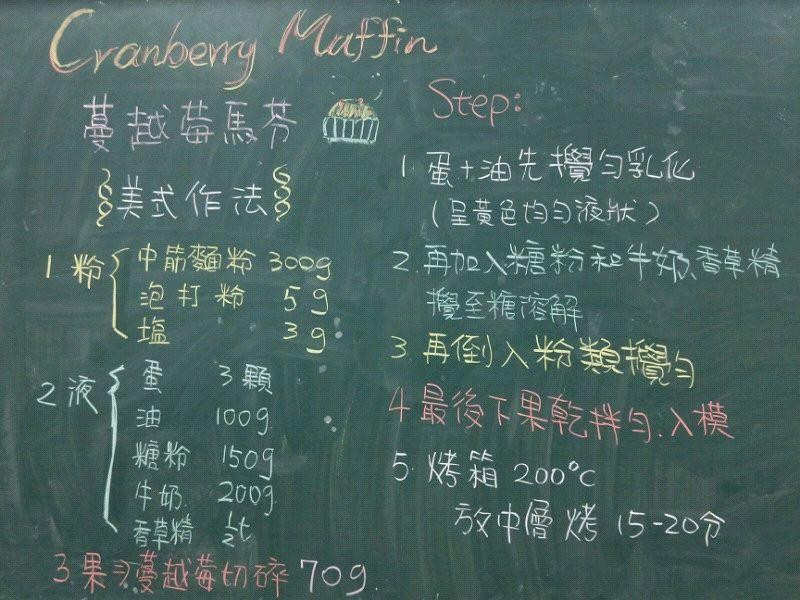 Cranberry Muffin
蔓越莓馬芬
美式作法
1. 粉
中筋麵粉 300g
泡打粉 5g
塩 3g
2 液
蛋 3顆
油 100g
糖粉 150g
牛奶. 200g
香草精 1/2t
3. 果 蔓越莓切碎 70g
Step:
1. 蛋+油先攪勻乳化
(呈黃色均勻液狀)
2. 再加入糖粉和牛奶、香草精
攪至糖溶解
3. 再倒入粉類攪勻
4 最後下果乾拌勻.入模
5. 烤箱 200°C
放中層烤 15-20分